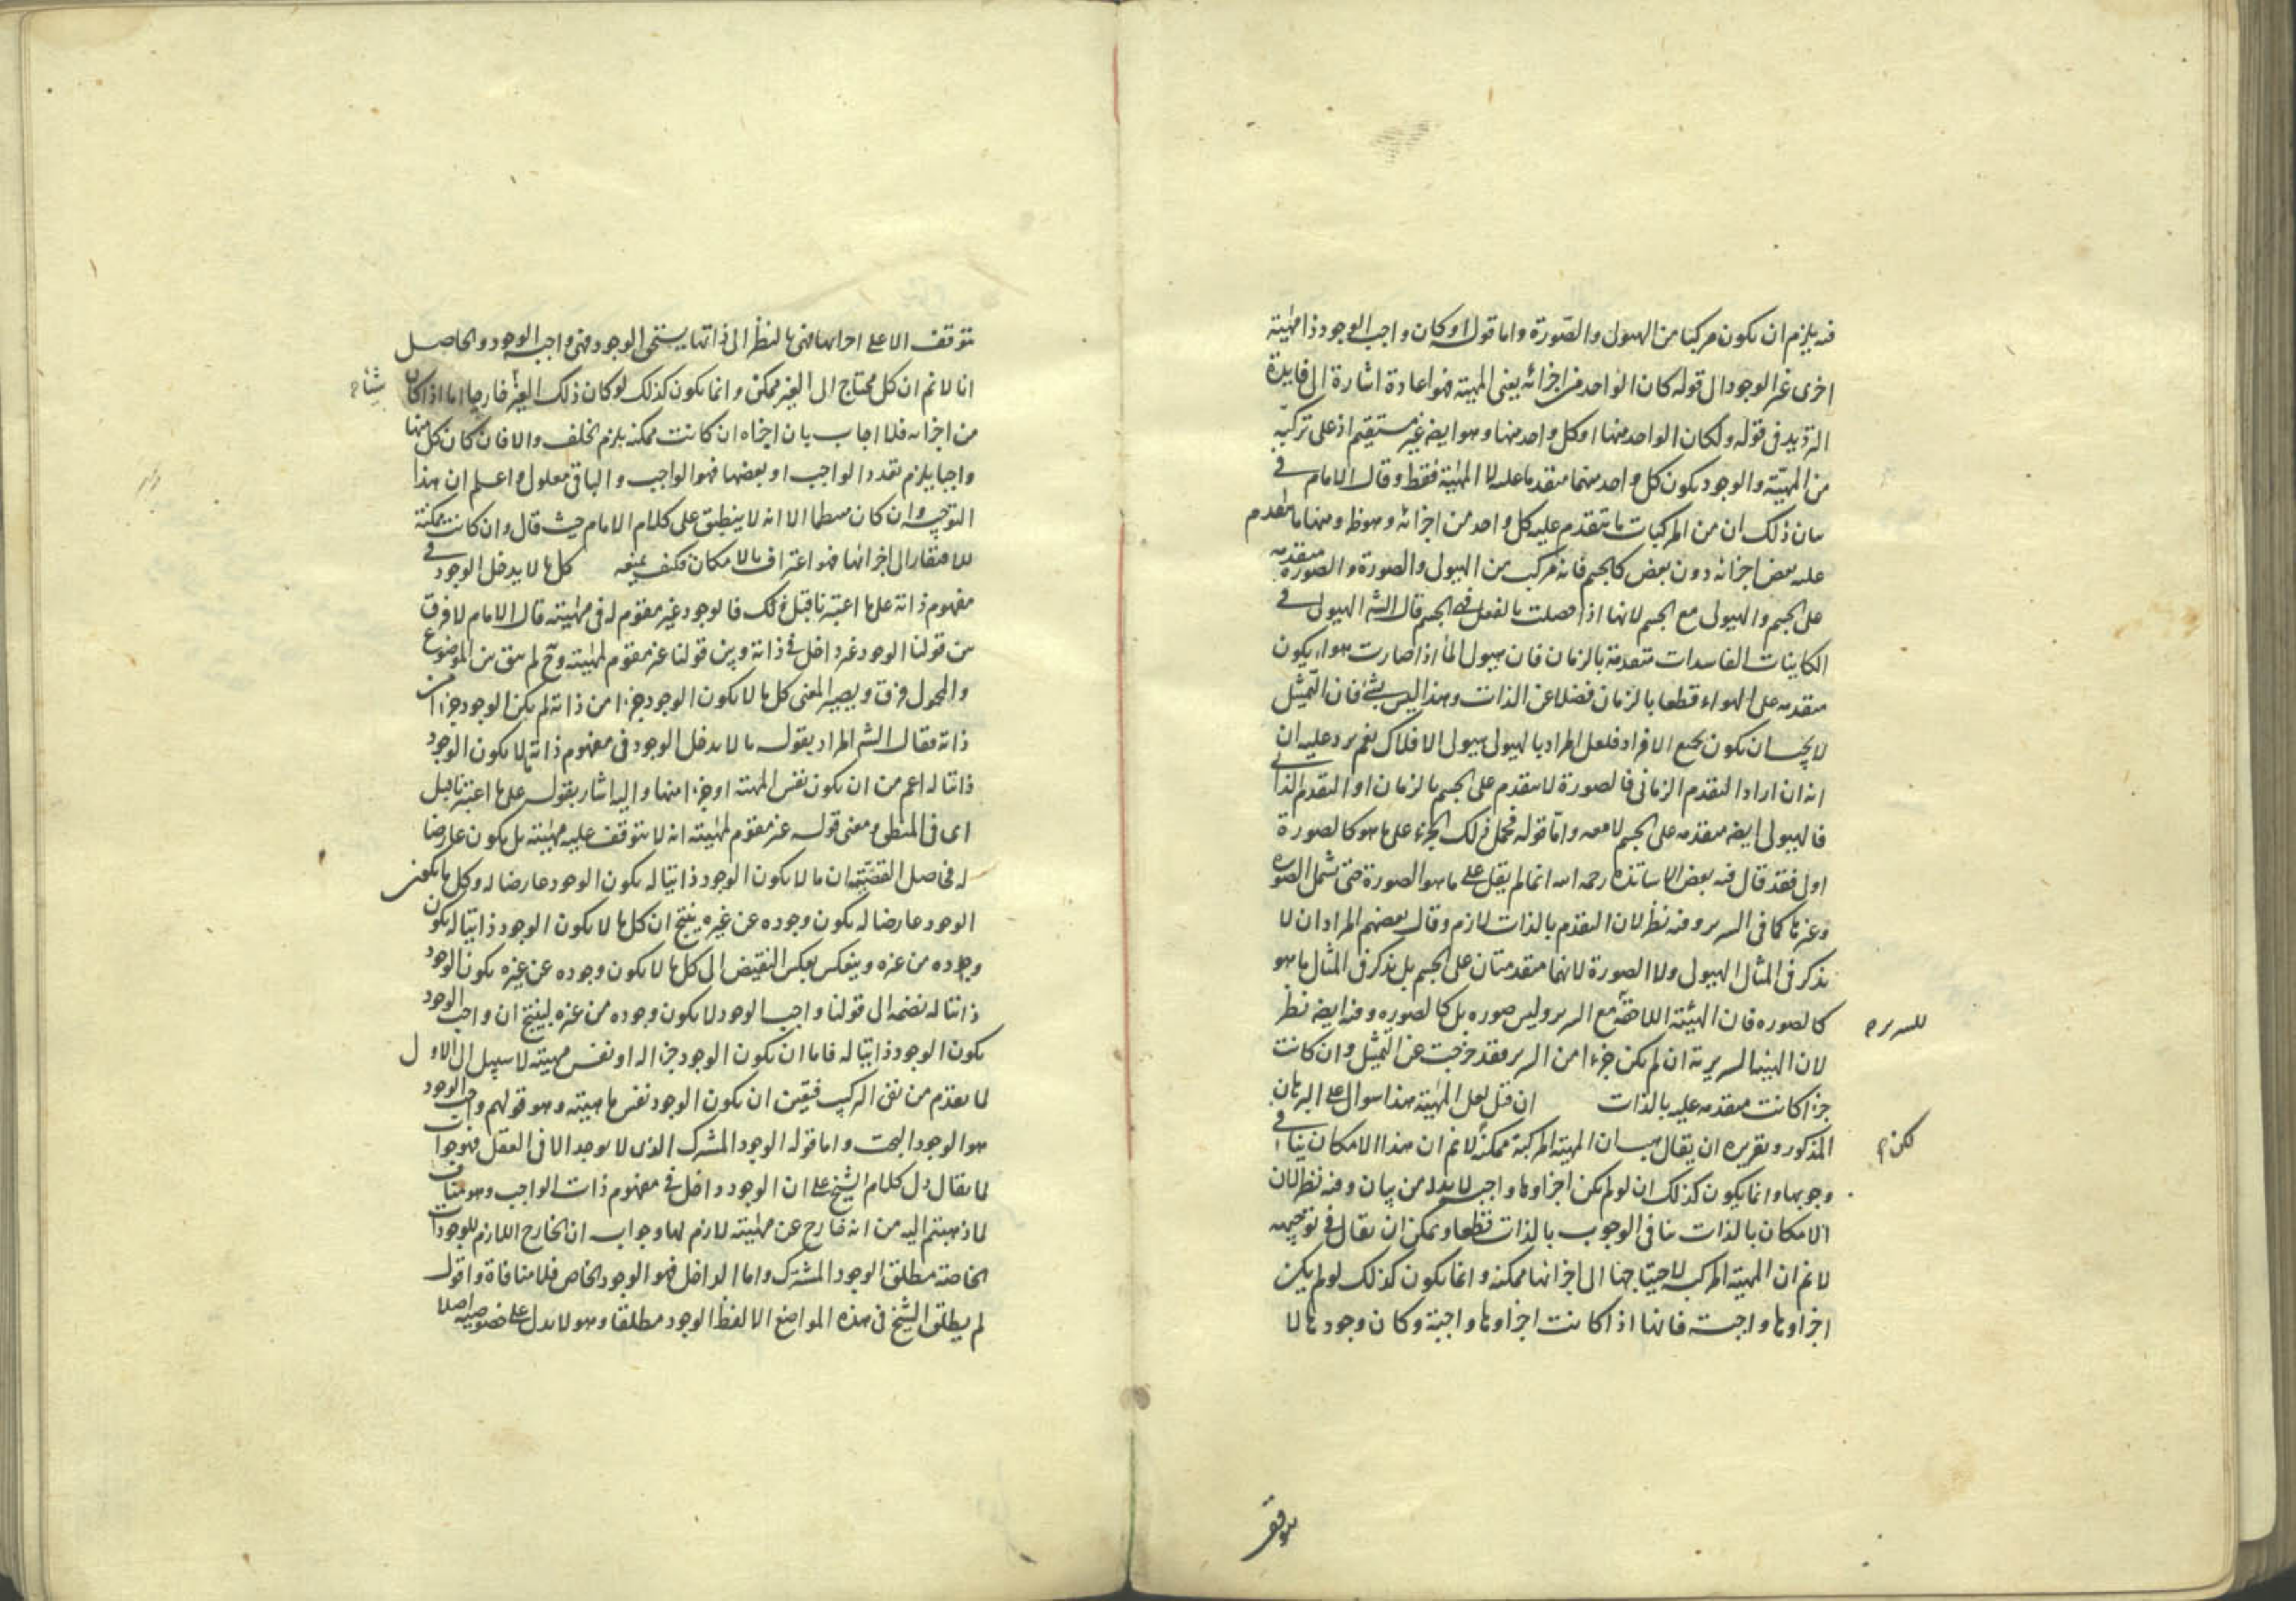 فيه يلزم ان يكون مركبا من الهيولى والصورة واما قوله او كان واجب الوجود ذا مهيته
اخرى غير الوجود الى قوله كان الواحد من اجزائه يعنى المهية فهو اعادة اشارة الى فايدة
الترديد فى قوله ولكان الواحد منها او كل واحد منها وهو ايضا غير مستقيم اذ على تركبه
من المهية والوجود يكون كل واحد منهما متقدما عليه لا المهية فقط وقال الامام فى
بيان ذلك ان من المركبات ما يتقدم عليه كل واحد من اجزائه وهو ظ ومنها ما يتقدم
عليه بعض اجزائه دون بعض كالجسم فانه مركب من الهيولى والصورة والصورة متقدمه
على الجسم والهيولى مع الجسم لانها اذا حصلت بالفعل فهى الجسم قال الش الهيولى فى
الكاينات الفاسدات متقدمة بالزمان فان هيولى الماء اذا صارت هواء يكون
متقدمه على الهواء قطعا بالزمان فضلا عن الذات وهذا ليس بشئ فان التمثيل
لا يجب ان يكون بجميع الافراد فلعل المراد بالهيولى هيولى الافلاك نعم يرد عليه ان
انه ان اراد التقدم الزمانى فالصورة لا يتقدم على الجسم بالزمان او التقدم الذاتى
فالهيولى ايضا متقدمه على الجسم لا معه واما قوله فحمل ذلك الجزء على ما هو كالصورة
اولى فقد قال فيه بعض الاساتذه رحمه الله انما لم يقل على ما هو الصورة حتى تشمل الصورة
وغيرها كما فى السرير وفيه نظر لان التقدم بالذات لازم وقال بعضهم المراد ان لا
يذكر فى المثال الهيولى ولا الصورة لانهما متقدمتان على الجسم بل يذكر فى المثال ما هو
كالصوره فان الهيئة اللاحقة مع السرير وليس صوره بل كالصوره وفيه ايضا نظر
للسرير م
لان الهيئة السريرية ان لم يكن جزءا من السرير فقد خرجت عن التمثيل وان كانت
جزءا كانت متقدمه عليه بالذات ان قيل لعل المهية هذا سوال على البرهان
المذكور وتقريره ان يقال هب ان المهية المركبة ممكنة لا نم ان هذا الامكان ينافى
لكن م
وجوبها وانما يكون كذلك ان لو لم يكن اجزاوها واجبه لا بد له من بيان وفيه نظر لان
الامكان بالذات ينافى الوجوب بالذات قطعا ويمكن ان يقال فى توجيهه
لا نم ان المهية المركبه لاحتياجها الى اجزائها ممكنه وانما يكون كذلك لو لم يكن
اجزاوها واجبه فانها اذا كانت اجزاوها واجبة وكان وجودها لا
يتوقف
يتوقف الا على اجزائها فهى بالنظر الى ذاتها يستحق الوجود فهى واجبه الوجود والحاصل
انا لا نم ان كل محتاج الى الغير ممكن وانما يكون كذلك لو كان ذلك الغير خارجا اما اذا كان
من اجزائه فلا اجاب بان اجزاه ان كانت ممكنه يلزم الخلف والا فان كان كل منها
واجبا يلزم تعدد الواجب او بعضها فهو الواجب والباقى معلول واعلم ان هذا
التوجيه وان كان الا انه لا ينطبق على كلام الامام حيث قال وان كانت ممكنة
للافتقار الى اجزائها فهو اعتراف بالامكان فكيف يمنعه كل ما لا يدخل الوجود فى
مفهوم ذاته على ما اعتبرنا قبل ذلك فالوجود غير مقوم له فى مهيته قال الامام لا فرق
بين قولنا الوجود غير داخل فى ذاته وبين قولنا غير مقوم لمهيته وح لم يبق بين الموضوع
والمحمول فرق ويصير المعنى كل ما لا يكون الوجود جزءا من ذاته لم يكن الوجود جزءا من
ذاته فقال الش المراد بقوله ما لا يدخل الوجود فى مفهوم ذاته ما لا يكون الوجود
ذاتيا له اعم من ان يكون نفس المهية او جزءا منها واليه اشار بقوله على ما اعتبرنا قبل
اى فى المنطق ومعنى قوله غير مقوم لمهيته انه لا يتوقف عليه مهيته بل يكون عارضا
له فحاصل القضية ان ما لا يكون الوجود ذاتيا له يكون الوجود عارضا له وكل ما يكون
الوجود عارضا له يكون وجوده عن غيره ينتج ان كل ما لا يكون الوجود ذاتيا له يكون
وجوده من غيره وينعكس بعكس النقيض الى كل ما لا يكون وجوده عن غيره يكون الوجود
ذاتيا له نضمه الى قولنا واجب الوجود لا يكون وجوده من غيره لينتج ان واجب الوجود
يكون الوجود ذاتيا له فاما ان يكون الوجود جزءا له او نفس مهيته لا سبيل الى الاول
لما تقدم من نفى التركيب فتعين ان يكون الوجود نفس ماهيته وهو قولهم واجب الوجود
هو الوجود البحت واما قوله الوجود المشترك الذى لا يوجد الا فى العقل فهو جواب
لما يقال دل كلام الشيخ على ان الوجود داخل فى مفهوم ذات الواجب وهو مناف
لما ذهبتم اليه من انه خارج عن مهيته لازم لها وجوابه ان الخارج اللازم للوجودات
الخاصة مطلق الوجود المشترك واما الداخل فهو الوجود الخاص فلا منافاة واقول
لم يطلق الشيخ فى هذه المواضع الا لفظ الوجود مطلقا وهو لا يدل على خصوصيته اصلا